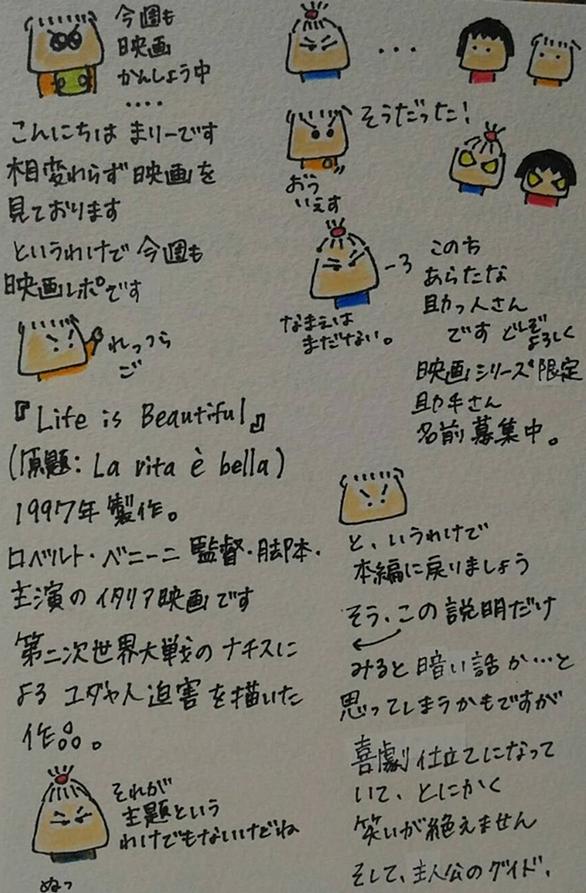 今週も
映画
かんしょう中
‥‥
こんにちは まりーです
相変わらず 映画を
見ております
というわけで 今週も
映画レポです
れっつら
ご
『Life is Beautiful』
(原題: La vita è bella)
1997年 製作。
ロベルト・ベニーニ 監督・脚本・
主演の イタリア映画です
第二次世界大戦の ナチスに
よる ユダヤ人迫害 を描いた
作品。
それが
主題という
わけでもないけどね
ぬっ
...
そうだった!
おう
いえす
なまえは
まだない。
この方
あらたな
助っ人さん
です どしどし
よろしく
映画シリーズ限定
助手さん
名前募集中。
と、いうわけで
本編に戻りましょう
そう、この説明だけ
みると 暗い話か…と
思ってしまうかもですが
喜劇仕立てになって
いて、とにかく
笑いが絶えません
そして、主人公のグイド、